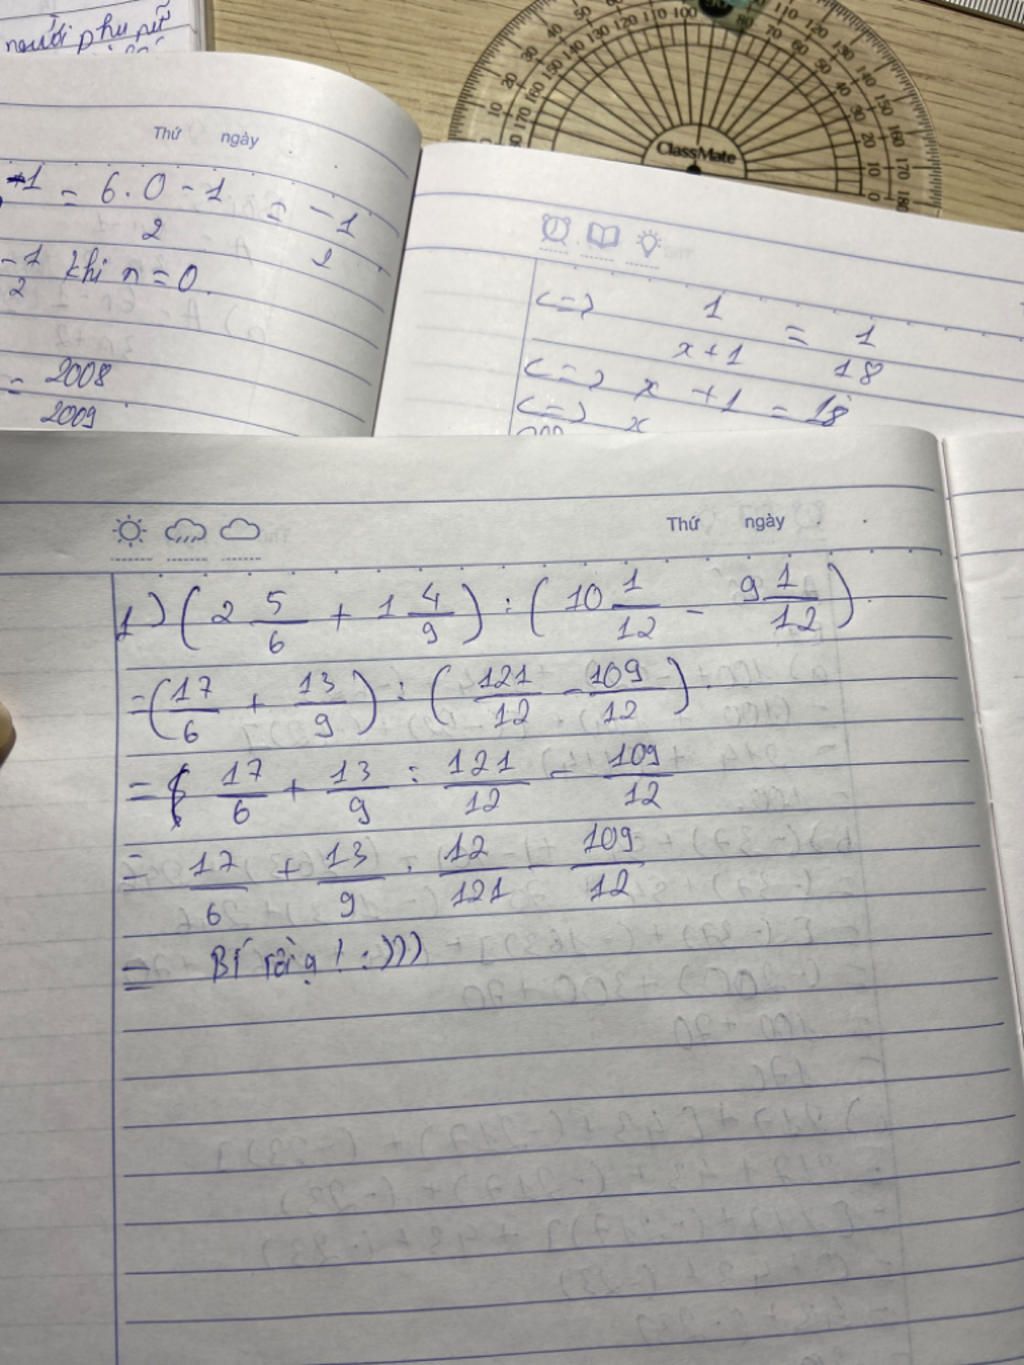 người phụ nữ
Thứ ngày
+1 = 6.0 - 1 = -1
2 1
-1/2 khi n = 0.
= 2008/2009
ClassMate
<=> 1/(x+1) = 1/18
<=> x + 1 = 18
<=> x
Thứ ngày
1) (2 5/6 + 1 4/9) : (10 1/12 - 9 1/12).
= (17/6 + 13/9) : (121/12 - 109/12).
= 17/6 + 13/9 : 121/12 - 109/12
= 17/6 + 13/9 . 12/121 - 109/12
= Bí rồi ạ ! :)))